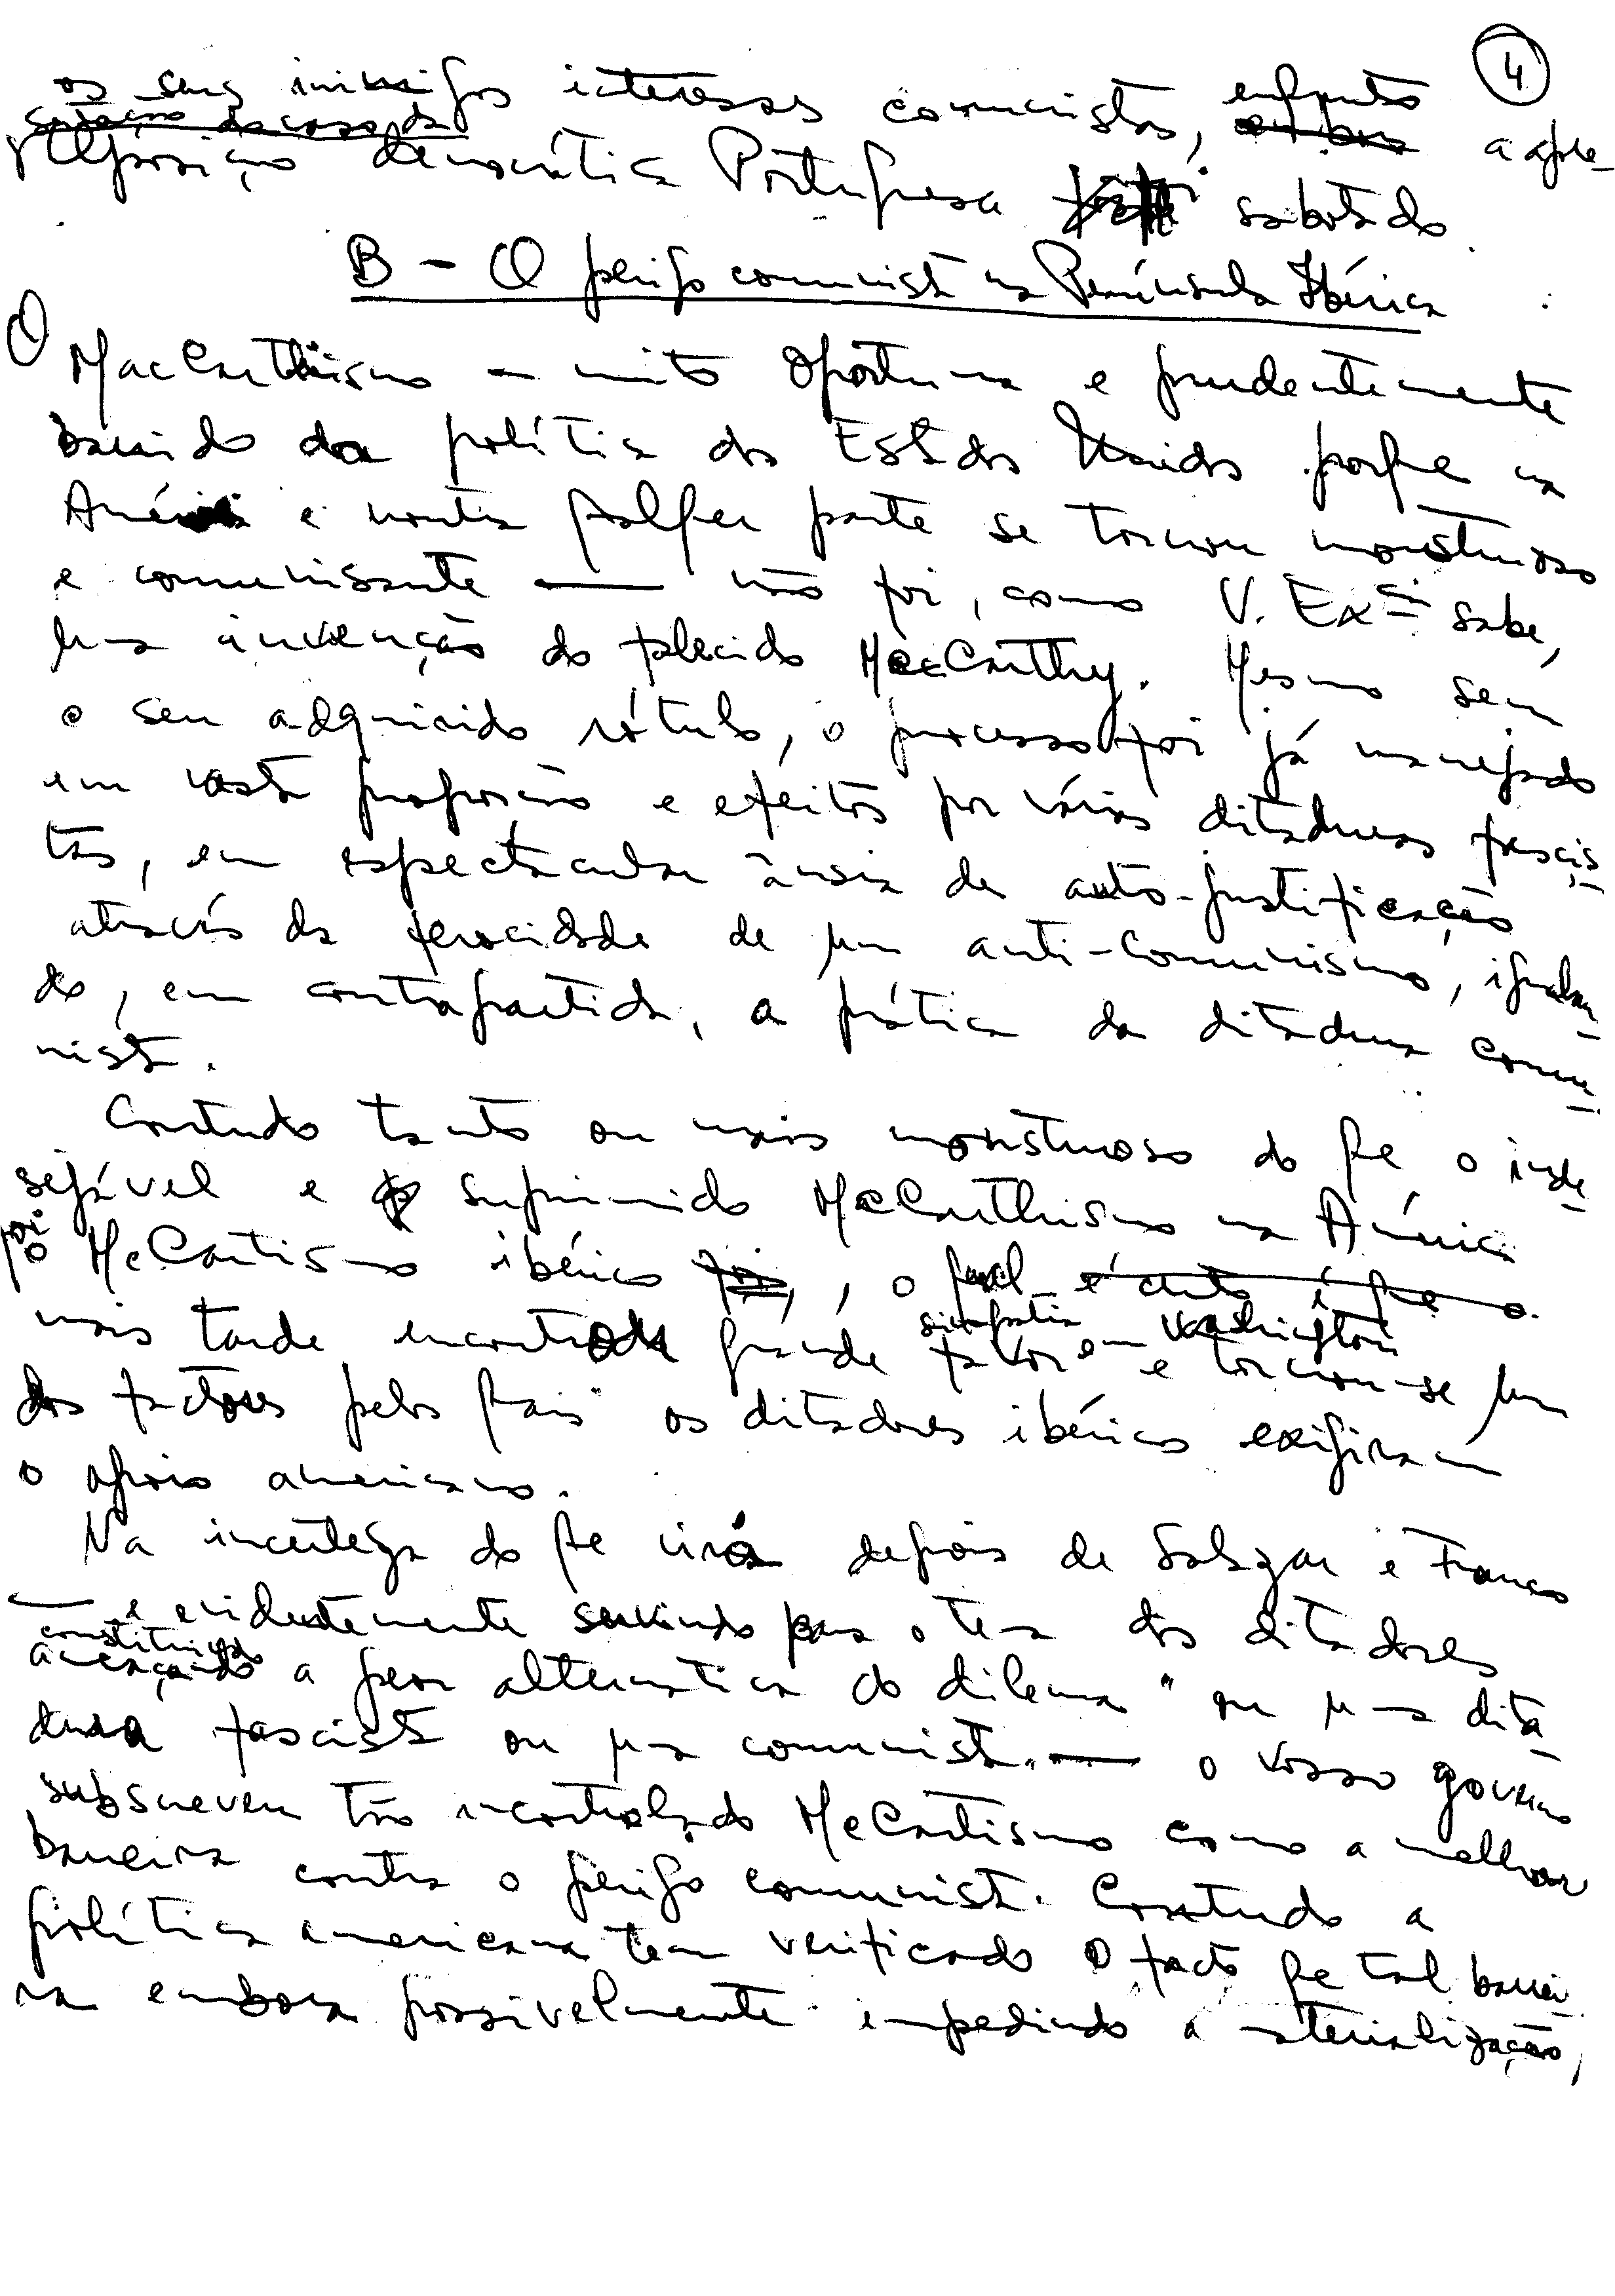 4
os seus inimigos interesses comunistas, enquanto a apre-
sentação do caso da
Oposição democrática Portuguesa foi sabotado.
B - O perigo comunista na Península Ibérica
O MacCarthismo - muito oportuna e prudentemente
banido da política dos Estados Unidos porque na
América e noutra qualquer parte se tornou monstruoso
e comunisante — não foi, como V. Excia sabe,
uma invenção do falecido MacCarthy. Mesmo sem
o seu adquirido rótulo, o processo foi já manejado
em vasta proporção e efeitos por várias ditaduras fascis-
tas, em espectacular ânsia de auto-justificação
através da ferocidade de um anti-comunismo, igualan-
do, em contrapartida, a prática da ditadura comu-
nista.
Contudo tanto ou mais monstruoso do que o inde-
sejável e suprimido MacCarthismo na América
foi o McCartismo ibérico, o qual
mais tarde encontrou grande simpatia favor em Washington e tornou-se um
dos factores pelos quais os ditadores ibéricos exigiram
o apoio americano.
Na incerteza do que virá depois de Salazar e Franco
— e evidentemente servindo para o tema dos ditadores
constituindo
a pior alternativa do dilema "ou uma dita-
dura fascista ou uma comunista" — o vosso governo
subscreveu tão incontrolado McCartismo como a melhor
barreira contra o perigo comunista. Contudo a
política americana tem verificado o facto que tal barrei-
ra embora possivelmente impedindo a materialização,